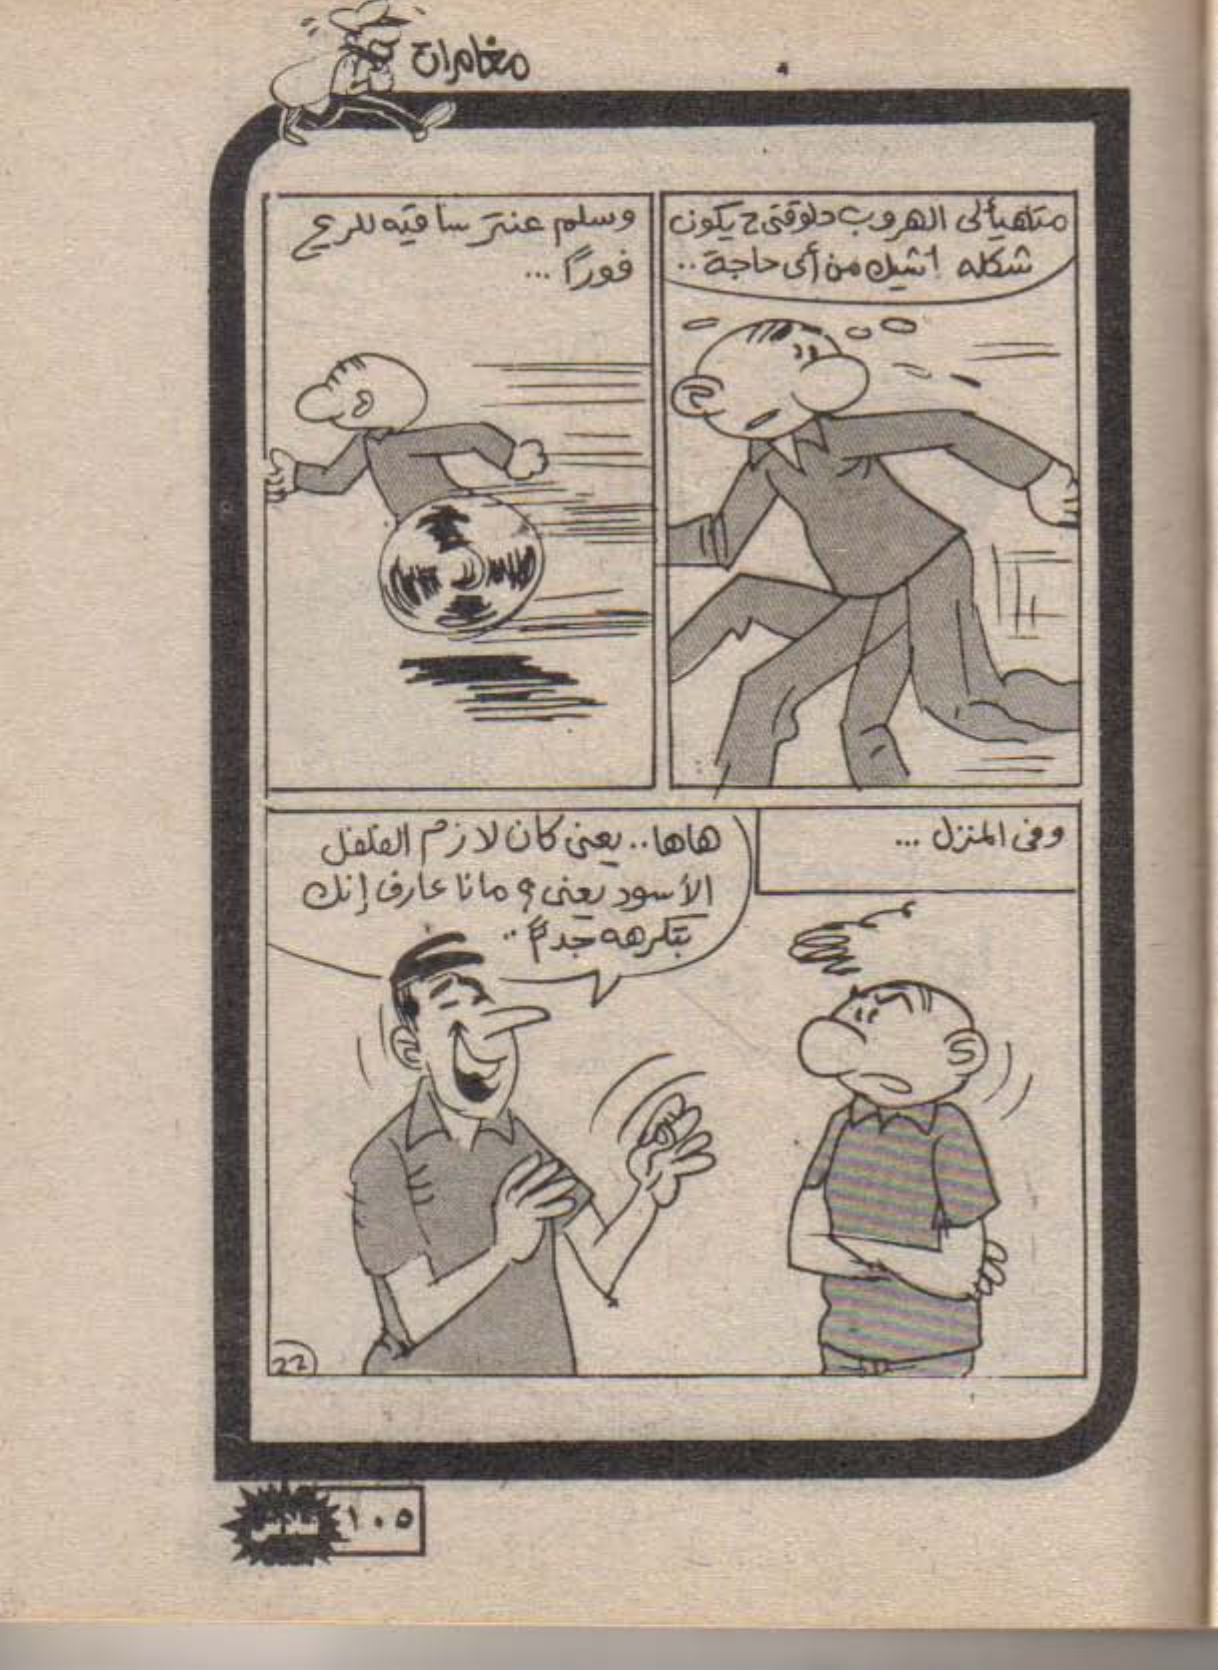 مغامرات
متاهيألى الهروب دلوقتى ح يكون
شكله أشيك من أى حاجة..
وسلم عنتر ساقيه للريح
فوراً ...
وفى المنزل ...
هاها.. يعنى كان لازم الفلفل
الأسود يعنى؟ مانا عارف إنك
بتكرهه جداً..
22
١٠٥